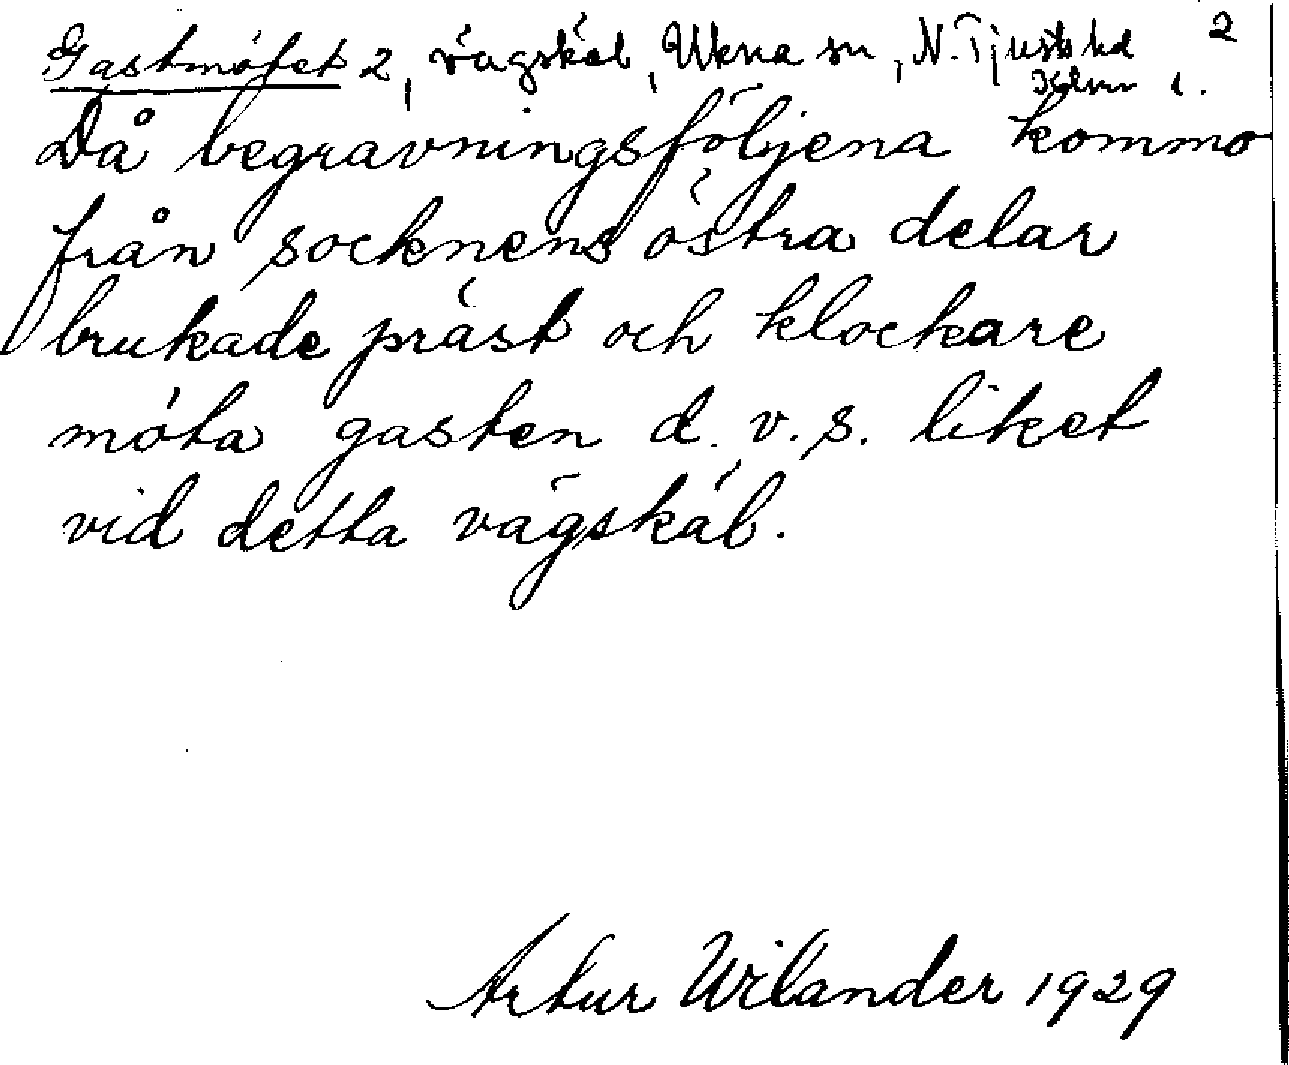 Gastmötet 2, vägskäl, Ukna sn, N. Tjusts hd 2
Kalmar l.
Då begravningsföljena kommo
från socknens östra delar
brukade präst och klockare
möta gasten d.v.s. liket
vid detta vägskäl.
Artur Wilander 1929